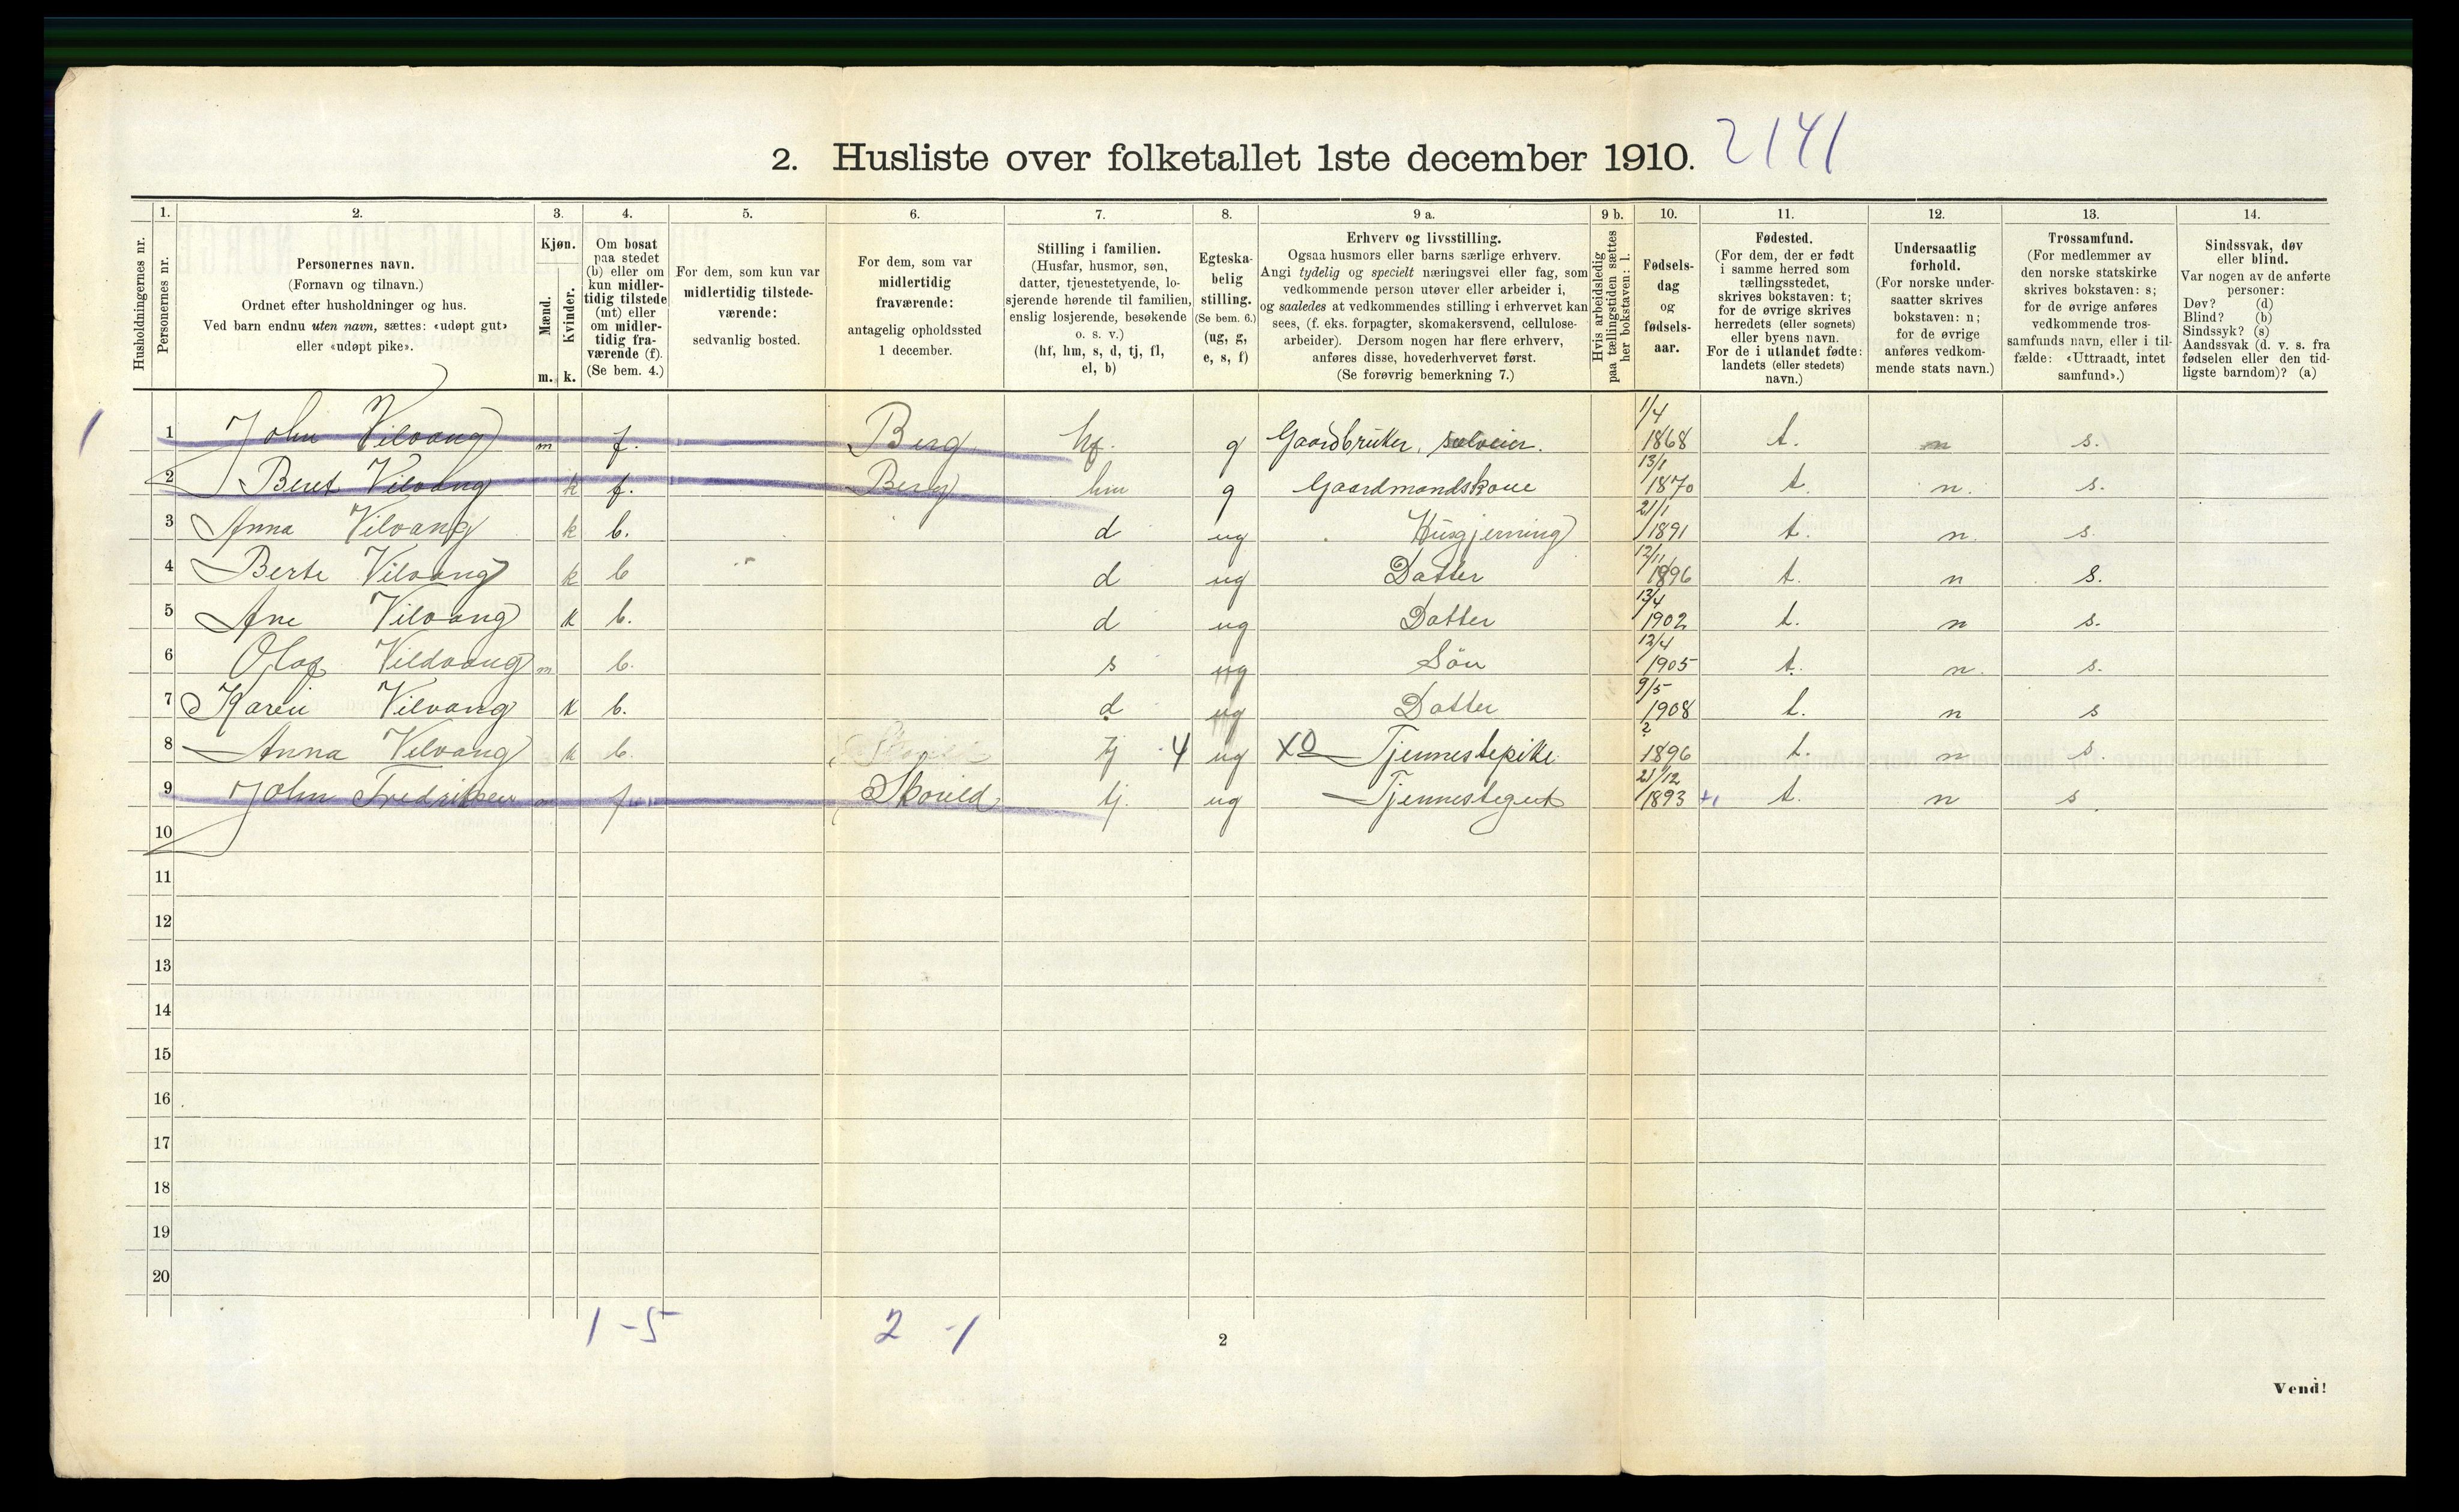 2. Husliste over folketallet 1ste december 1910. 2141
1. 2. 3. 4. 5. 6. 7. 8. 9 a. 9 b. 10. 11. 12. 13. 14.
Husholdningernes nr.
Personernes nr.
Personernes navn.
(Fornavn og tilnavn.)
Ordnet efter husholdninger og hus.
Ved barn endnu uten navn, sættes: «udøpt gut»
eller «udøpt pike».
Kjøn.
Mænd.
Kvinder.
m. k.
Om bosat
paa stedet
(b) eller om
kun midler-
tidig tilstede
(mt) eller
om midler-
tidig fra-
værende (f).
(Se bem. 4.)
For dem, som kun var
midlertidig tilstede-
værende:
sedvanlig bosted.
For dem, som var
midlertidig
fraværende:
antagelig opholdssted
1 december.
Stilling i familien.
(Husfar, husmor, søn,
datter, tjenestetyende, lo-
sjerende hørende til familien,
enslig losjerende, besøkende
o. s. v.)
(hf, hm, s, d, tj, fl,
el, b)
Egteska-
belig
stilling.
(Se bem. 6.)
(ug, g,
e, s, f)
Erhverv og livsstilling.
Ogsaa husmors eller barns særlige erhverv.
Angi tydelig og specielt næringsvei eller fag, som
vedkommende person utøver eller arbeider i,
og saaledes at vedkommendes stilling i erhvervet kan
sees, (f. eks. forpagter, skomakersvend, cellulose-
arbeider). Dersom nogen har flere erhverv,
anføres disse, hovederhvervet først.
(Se forøvrig bemerkning 7.)
Hvis arbeidsledig
paa tællingstiden sættes
her bokstaven: l.
Fødsels-
dag
og
fødsels-
aar.
Fødested.
(For dem, der er født
i samme herred som
tællingsstedet,
skrives bokstaven: t;
for de øvrige skrives
herredets (eller sognets)
eller byens navn.
For de i utlandet fødte:
landets (eller stedets)
navn.)
Undersaatlig
forhold.
(For norske under-
saatter skrives
bokstaven: n;
for de øvrige
anføres vedkom-
mende stats navn.)
Trossamfund.
(For medlemmer av
den norske statskirke
skrives bokstaven: s;
for de øvrige anføres
vedkommende tros-
samfunds navn, eller i til-
fælde: «Uttraadt, intet
samfund».)
Sindssvak, døv
eller blind.
Var nogen av de anførte
personer:
Døv? (d)
Blind? (b)
Sindssyk? (s)
Aandssvak (d. v. s. fra
fødselen eller den tid-
ligste barndom)? (a)
1 1 John Vilvang m f. Berg hf. g Gaardbruker, selveier. 1/4 1868 t. n s.
2 Beret Vilvang k f. Berg hm g Gaardmandskone 13/1 1870 t. n. s.
3 Anna Vilvang k b. d ug Husgjerning 21/1 1891 t. n. s.
4 Berte Vilvang k b d ug Datter 12/11 1896 t. n s.
5 Ane Vilvang k b. d ug Datter 13/4 1902 t. n s.
6 Olaf Vildvang m b. s ug Sön 12/4 1905 t. n. s.
7 Karen Vilvang k b. d ug Datter 9/5 1908 t. n s
8 Anna Vilvang k b. tj 4 ug X0 Tjennestepike ? 1896 t. n s.
9 John Fredriksen m f Skovld tj. ug Tjennestegut 21/12 1893 +1 t. n s
10
11
12
13
14
15
16
17
18
19
20
1 - 5 2 - 1
2
Vend!